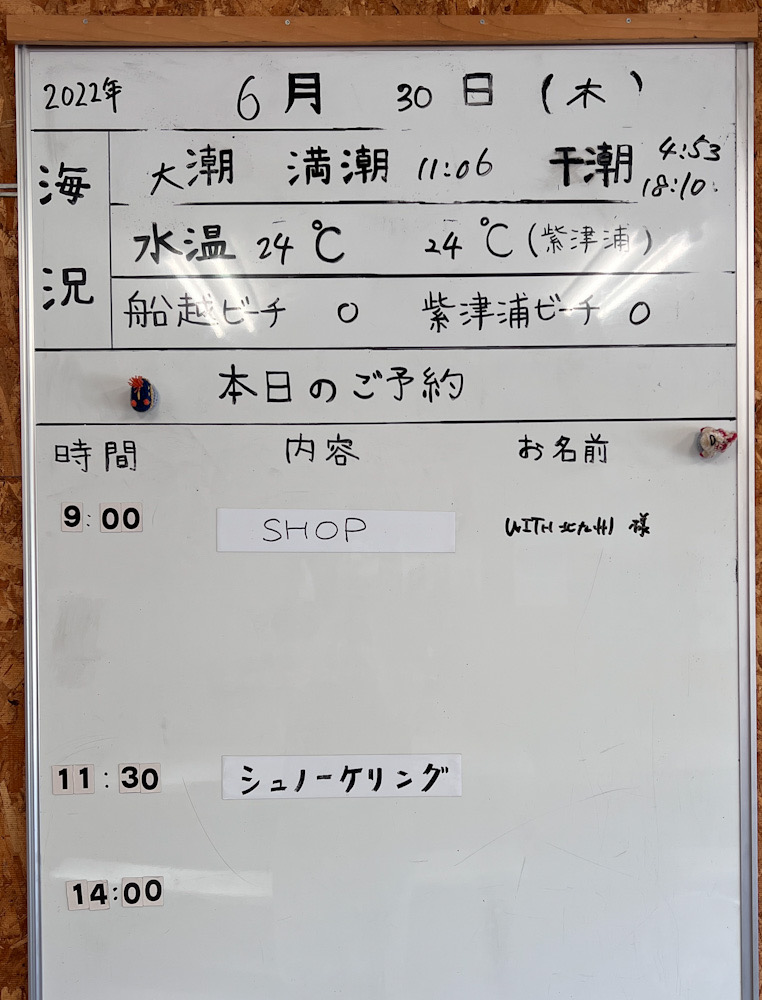 2022年 6月 30日 (木)
海況
大潮 満潮 11:06 干潮 4:53 18:10
水温 24℃ 24℃(紫津浦)
船越ビーチ 0 紫津浦ビーチ 0
本日のご予約
時間 内容 お名前
9:00 SHOP WITH北九州 様
11:30 シュノーケリング
14:00